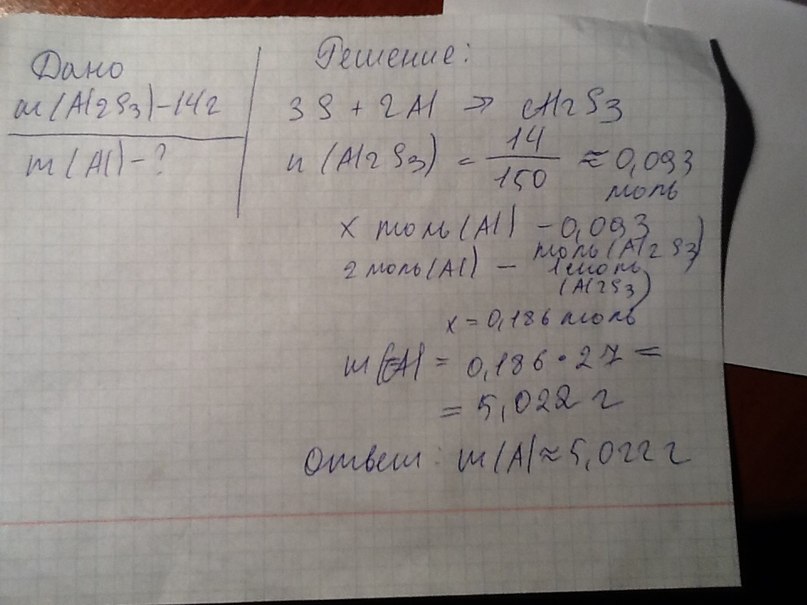 Дано
m(Al2S3)-14г
m(Al)-?
Решение:
3S + 2Al => Al2S3
n(Al2S3) = 14/150 ≈ 0,093
моль
x моль(Al) - 0,093
моль(Al2S3)
2 моль(Al) - 1 моль
(Al2S3)
x = 0,186 моль
m(Al = 0,186 • 27 =
= 5,022 г
Ответ: m(Al ≈ 5,022 г